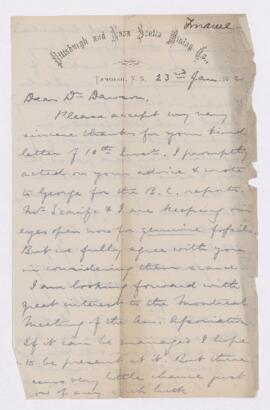 Pittsburgh and Nova Scotia Mining Co.
23rd Jan.
Dear Dr Dawson,
Please accept my very
sincere thanks for your kind
letter of 10th inst. I promptly
acted on your advice & wrote
to George for the B.C. reports.
Mr & I are keeping our
eyes open now for genuine fossils
But we fully agree with you
in considering them scarce.
I am looking forward with
great interest to the Montreal
Meeting of the Am. Association
If it can be managed I hope
to be present at it. But there
seems very little chance just
now of any such luck